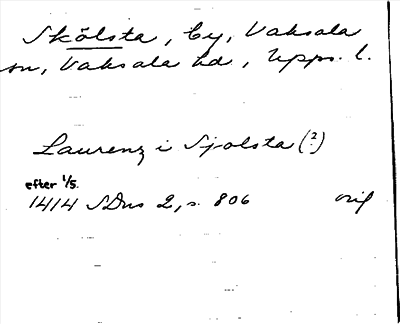 Skölsta, by, Vaksala
sn, Vaksala hd, Upps. l.
Laurenz i Sjolsta (?)
efter 1/5.
1414 SDns 2, s. 806 orig